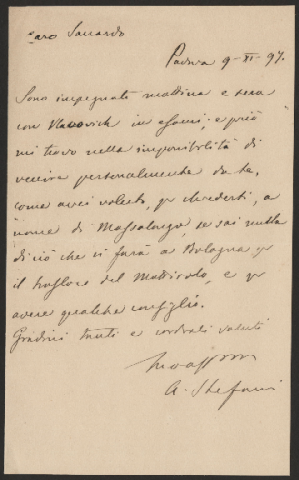 Caro Saccardo
Padova 9-XI-97.
Sono impegnato mattina e sera
con Vlacovich in esami, e perciò
mi trovo nella impossibilità di
venire personalmente da te,
come avrei voluto, per chiederti, a
nome di Massalongo, se sai nulla
di ciò che si farà a Bologna per
il del Mattirolo, e per
avere qualche consiglio.
Gradisci tanti e cordiali saluti
A. Stefani